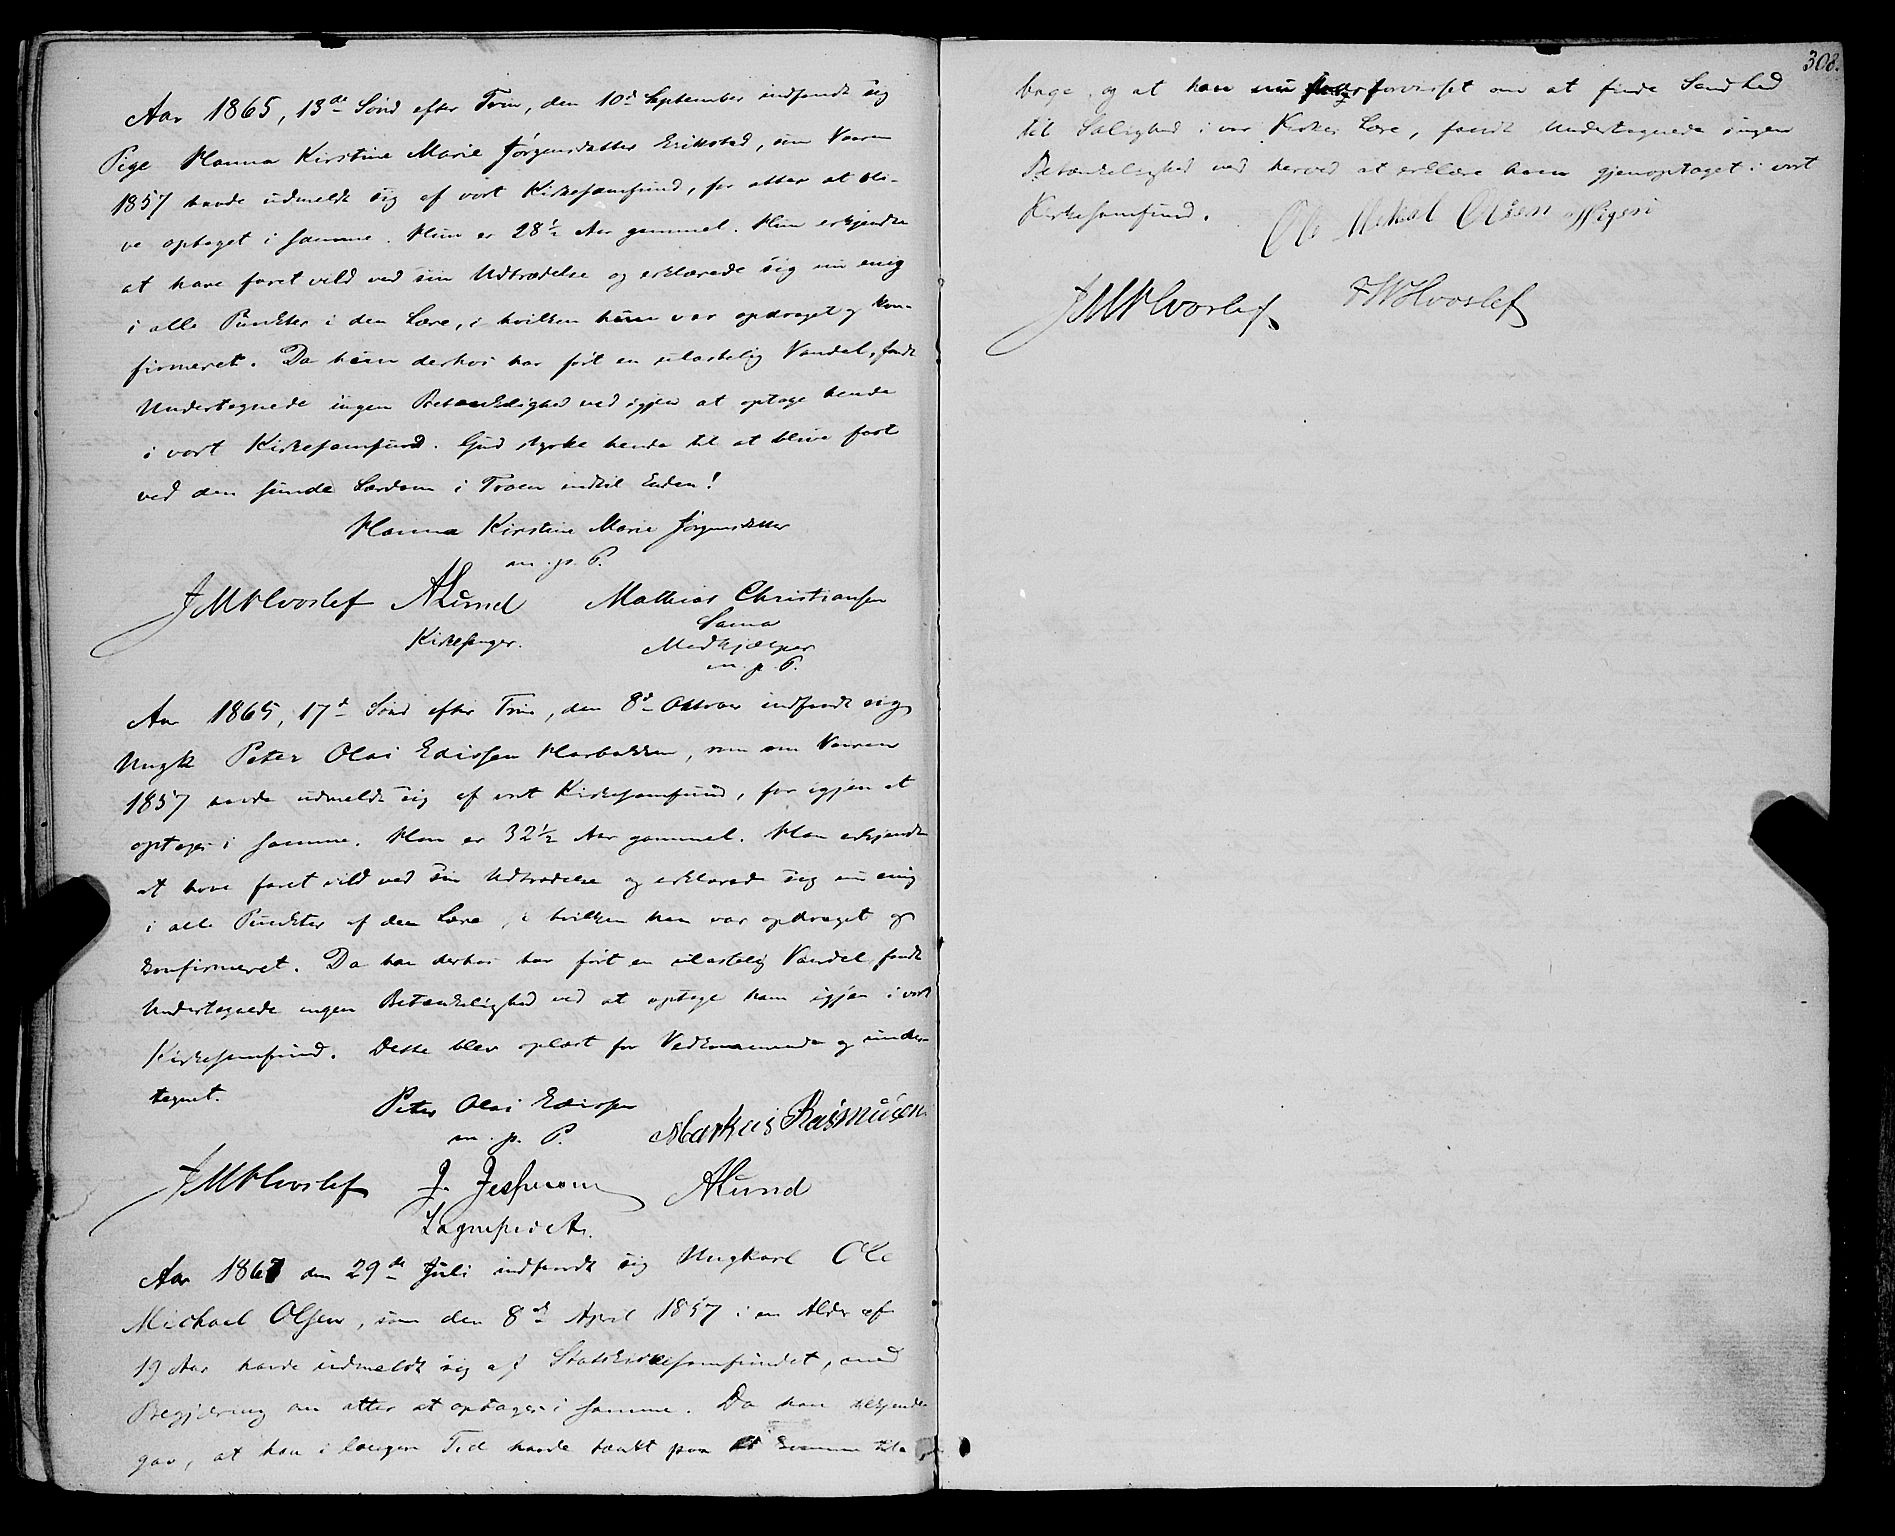 Aar 1865, 13de Sönd efter Trin, den 10d September indfandt sig
Pige Hanna Kirstine Marie Jörgensdatter Erikstad, som Vaaren
1857 havde udmeldt sig af vort Kirkesamfund, for atter at bli-
ve optaget i samme. Hun er 28½ Aar gammel. Hun erkjendte
at have faret vild ved sin Udtrædelse og erklærede sig nu enig
i alle Punkter i den Lære, i hvilken hun var opdraget og kon-
firmeret. Da hun derhos har fört en ulastelig Vandel, fandt
Undertegnede ingen Betænkelighed ved igjen at optage hende
i vort Kirkesamfund. Gud styrke hende til at blive fast
ved den sunde Lærdom i Troen indtil Enden!
Hanna Kirstine Marie Jörgensdatter
m. p. P.
JMHvoslef ALund Mathias Christiansen
Kirkesanger.
Medhjælper
m. p. P.
Aar 1865, 17d Sönd efter Trin, den 8d Oktober indfandt sig
Ungk Peter Olai Edissen Harbakken, som om Vaaren
1857 havde udmeldt sig af vort Kirkesamfund, for igjen at
optages i samme. Han er 32½ Aar gammel. Han erkjendte
at have faret vild ved sin Udtrædelse og erklærede sig nu enig
i alle Punkter af den Lære, i hvilken han var opdraget og
konfirmeret. Da han derhos har fört en ulastelig Vandel fandt
Undertegnede ingen Betænkelighed ved at optage ham igjen i vort
Kirkesamfund. Dette blev oplæst for Vedkommende og under-
tegnet.
Peter Olai Edissen Markus Rasmusen
m. p. P.
JMHvoslef J. Jespersen ALund
Aar 1867 den 29de Juli indfandt sig Ungkarl Ole
Michael Olsen, som den 8de April 1857 i en Alder af
19 Aar havde udmeldt sig af Statskirkesamfundet, med
Begjæring om atter at optages i samme. Da han tilkjende-
gav, at han i længere Tid havde tænkt paa at komme tila-
308.
bage, og at han nu forvisset om at finde Sandhed
til Salighed i vor Kirkes Lære, fandt Undertegnede ingen
Betænkelighed ved herved at erklære ham gjenoptaget i vort
Kirkesamfund. Ole Mekal Olsen
JMHvoslef FWHvoslef